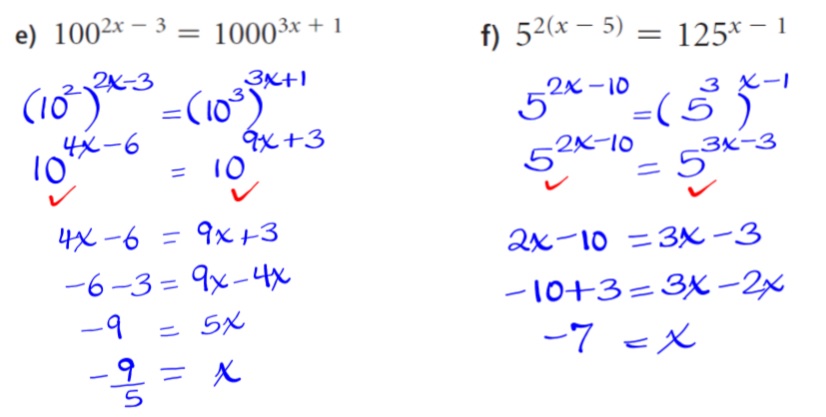 e) 100^{2x – 3} = 1000^{3x + 1}
(10²)^{2x-3} = (10³)^{3x+1}
10^{4x-6} = 10^{9x+3}
✓ ✓
4x-6 = 9x+3
-6-3 = 9x-4x
-9 = 5x
-9/5 = x
f) 5^{2(x – 5)} = 125^{x – 1}
5^{2x-10} = (5³)^{x-1}
5^{2x-10} = 5^{3x-3}
✓ ✓
2x-10 = 3x-3
-10+3 = 3x-2x
-7 = x